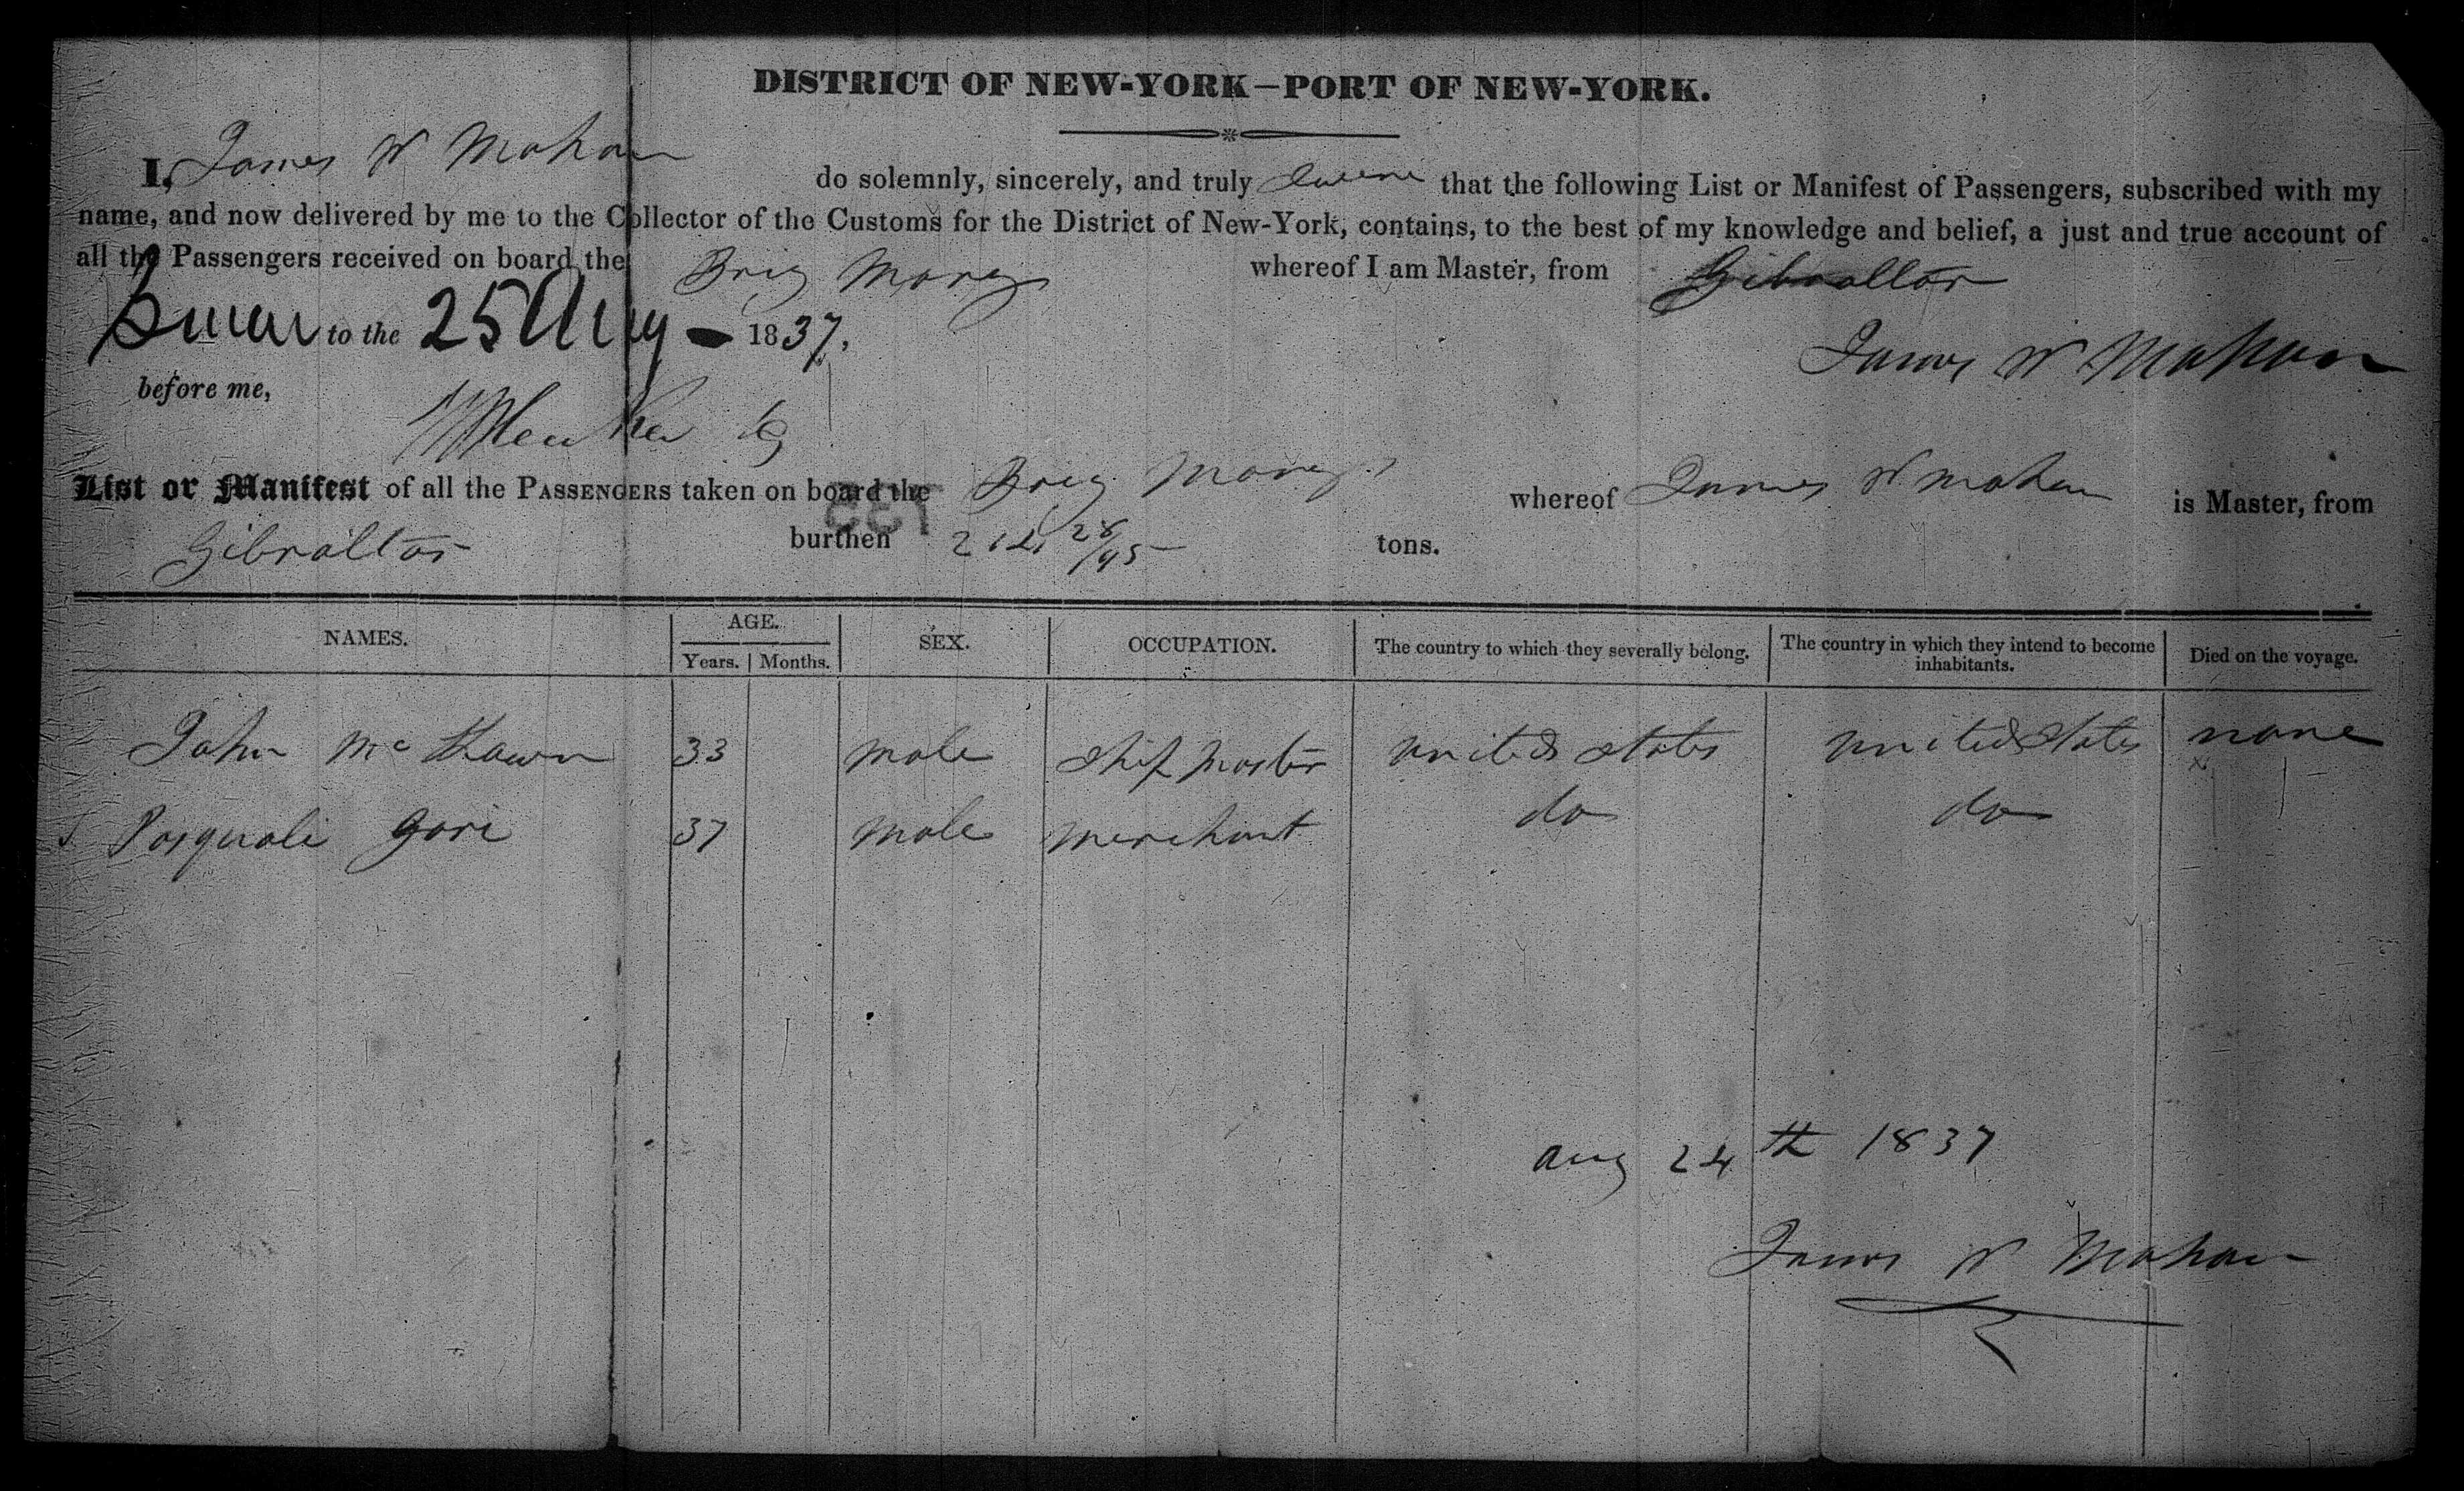 DISTRICT OF NEW-YORK—PORT OF NEW-YORK.
I, James W Mahan do solemnly, sincerely, and truly swear that the following List or Manifest of Passengers, subscribed with my
name, and now delivered by me to the Collector of the Customs for the District of New-York, contains, to the best of my knowledge and belief, a just and true account of
all the Passengers received on board the Brig Mary whereof I am Master, from Gibralltar
Sworn to the 25 Aug 1837.
James W Mahan
before me,
List or Manifest of all the PASSENGERS taken on board the Brig Mary whereof James W Mahan is Master, from
Gibralltar burthen 28/95 tons.
NAMES. AGE. SEX. OCCUPATION. The country to which they severally belong. The country in which they intend to become inhabitants. Died on the voyage.
Years. Months.
John Mc 33 male Ship Master united states united states none
Pasquale Gori 37 male merchant do do
Aug 24th 1837
James W Mahan